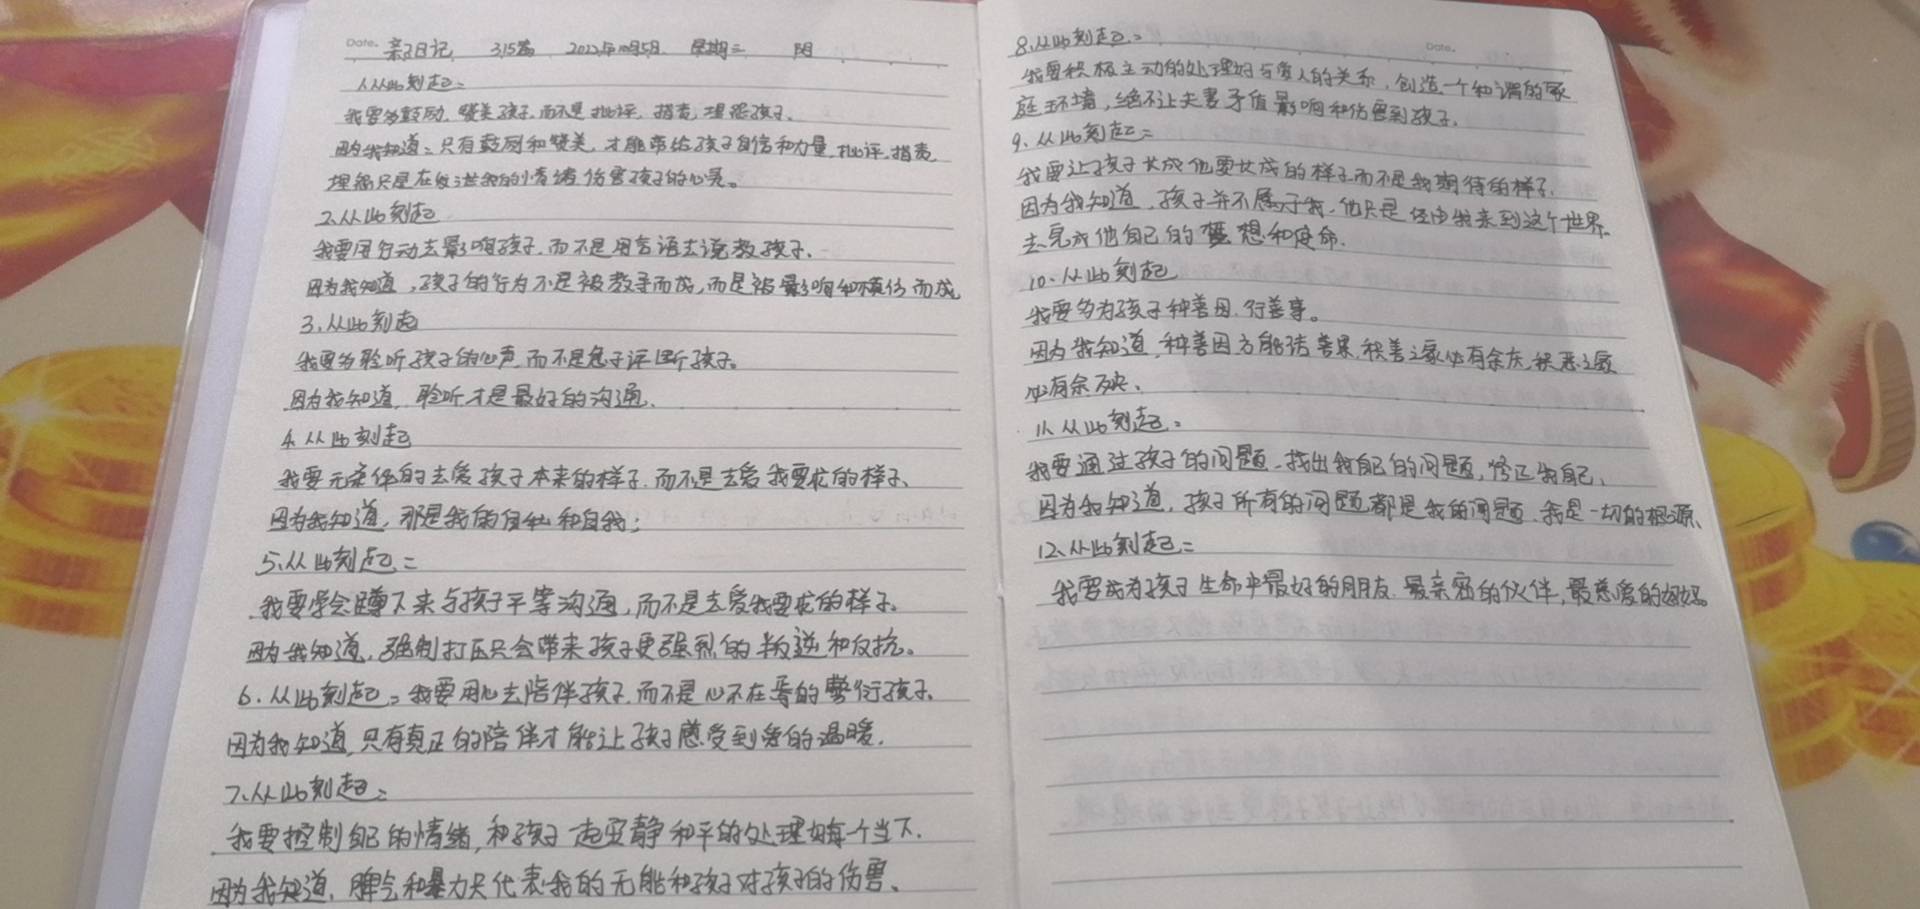 Date. 亲子日记 315篇 2022年10月5日 星期三 阴
1、从此刻起：
我要多鼓励，赞美孩子，而不是批评，指责，埋怨孩子、
因为我知道：只有鼓励和赞美，才能带给孩子自信和力量，批评，指责
埋怨只是在发泄我的情绪伤害孩子的心灵。
2、从此刻起
我要用行动去影响孩子，而不是用言语去说教孩子、
因为我知道，孩子的行为不是被教导而成，而是被影响和模仿而成
3、从此刻起
我要多聆听孩子的心声，而不是急于评断孩子。
因为我知道，聆听才是最好的沟通、
4、从此刻起
我要无条件的去爱孩子本来的样子，而不是去爱我要求的样子、
因为我知道，那是我的自私和自我；
5、从此刻起：
我要学会蹲下来与孩子平等沟通，而不是去爱我要求的样子。
因为我知道，强制打压只会带来孩子更强烈的叛逆和反抗。
6、从此刻起：我要用心去陪伴孩子，而不是心不在焉的敷衍孩子、
因为我知道，只有真正的陪伴才能让孩子感受到爱的温暖、
7、从此刻起：
我要控制自己的情绪，和孩子一起安静和平的处理好每个当下、
因为我知道，脾气和暴力只代表我的无能和孩子对孩子的伤害、
8、从此刻起：
Date.
我要积极主动的处理好与爱人的关系，创造一个和谐的家
庭环境，绝不让夫妻矛盾影响和伤害到孩子、
9、从此刻起：
我要让孩子长成他要长成的样子而不是我期待的样子、
因为我知道，孩子并不属于我，他只是经由我来到这个世界、
去完成他自己的梦想和使命、
10、从此刻起
我要多为孩子种善因，行善事。
因为我知道，种善因方能结善果，积善之家必有余庆，积恶之家
必有余殃、
11、从此刻起：
我要通过孩子的问题，找出我自己的问题，修正我自己、
因为我知道，孩子所有的问题都是我的问题，我是一切的根源、
12、从此刻起：
我要成为孩子生命中最好的朋友，最亲密的伙伴，最慈爱的妈妈